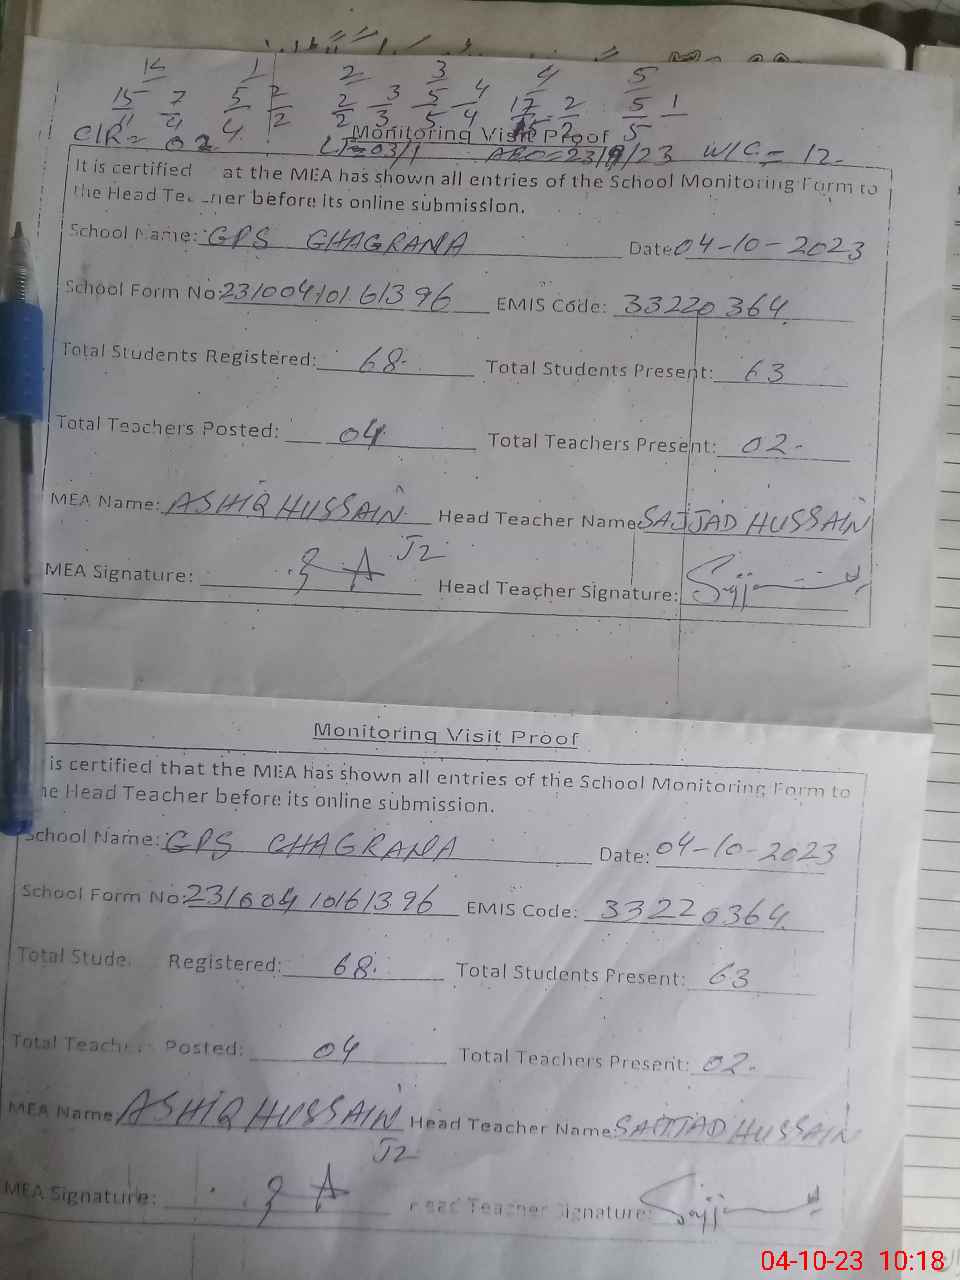 14 1 2 3 4 5
15 7 5 2 2 3 5 4 17 2 5 1
11 4 4 2 2 3 5 4 2 5
Monitoring Visit Proof
C/R= 02 LT=03/1 AEO=23/9/23 W/C= 12-
It is certified at the MEA has shown all entries of the School Monitoring Form to
the Head Te ner before its online submission.
School Name: GPS GHAGRANA Date 04-10-2023
School Form No: 23100410161396 EMIS Code: 33220364
Total Students Registered: 68 Total Students Present: 63
Total Teachers Posted: 04 Total Teachers Present: 02-
MEA Name: ASHIQ HUSSAIN Head Teacher Name: SAJJAD HUSSAIN
J2
MEA Signature: Head Teacher Signature: Sajj
Monitoring Visit Proof
is certified that the MEA has shown all entries of the School Monitoring Form to
he Head Teacher before its online submission.
School Name: GPS GHAGRANA Date: 04-10-2023
School Form No: 23100410161396 EMIS Code: 33220364
Total Stude Registered: 68 Total Students Present: 63
Total Teacher Posted: 04 Total Teachers Present: 02-
MEA Name ASHIQ HUSSAIN Head Teacher Name: SAJJAD HUSSAIN
J2
MEA Signature: Head Teacher Signature: Sajj
04-10-23 10:18